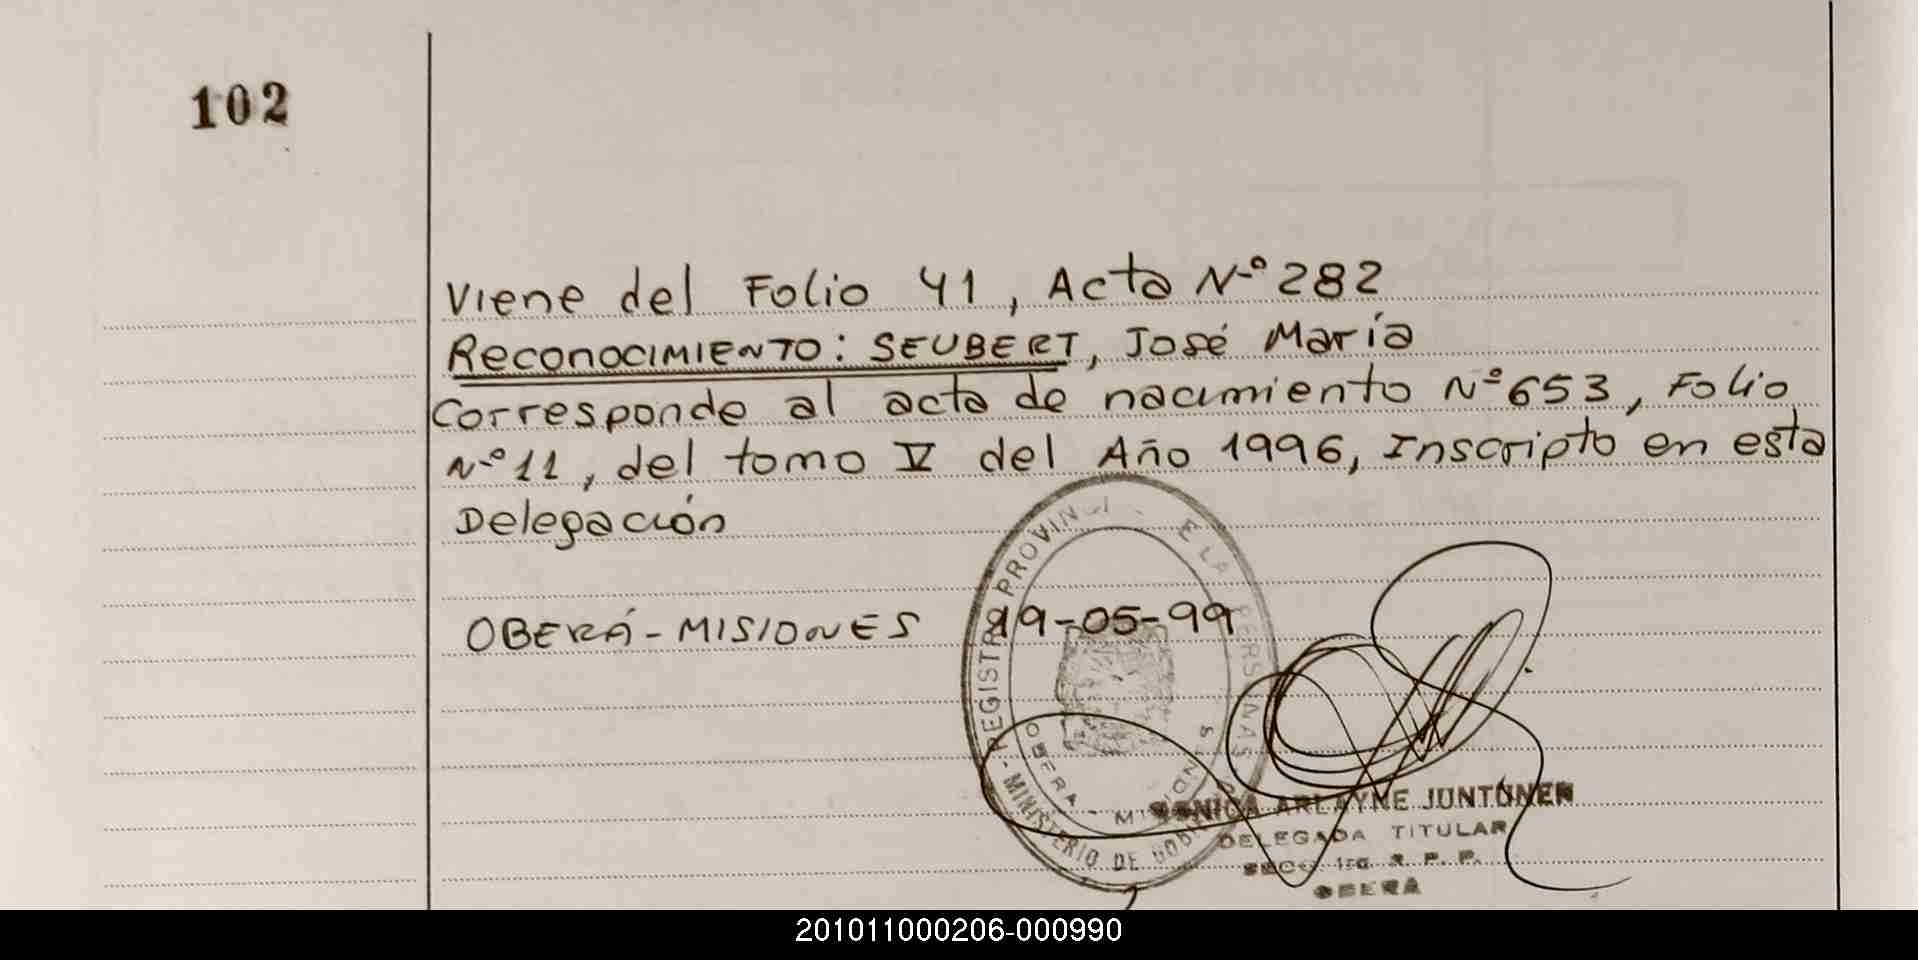 102
Viene del Folio 41, Acta Nº 282
Reconocimiento: SEUBERT, José María
Corresponde al acta de nacimiento Nº 653, Folio
Nº 11, del tomo V del Año 1996, Inscripto en esta
Delegación
OBERÁ - MISIONES 19-05-99
REGISTRO PROVINCI E LA PERSONAS
OBERA - MISIONES
MINISTERIO DE
ARLAYNE JUNTONEN
DELEGADA TITULAR
R. P. P.
OBERÁ
201011000206-000990